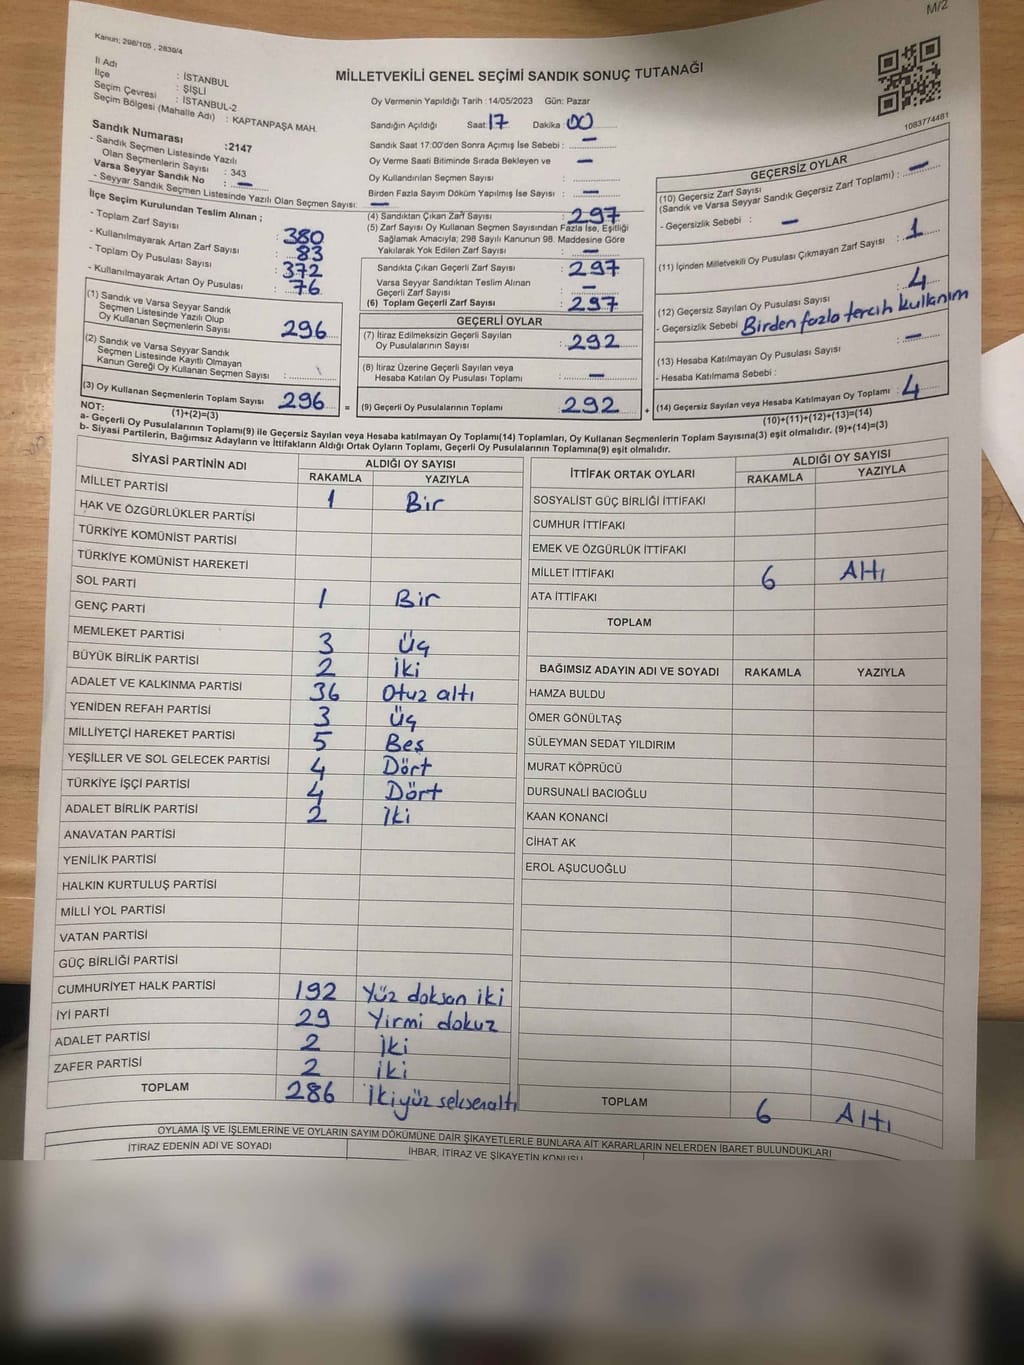 M/2
Kanun: 298/105 , 2839/4
MİLLETVEKİLİ GENEL SEÇİMİ SANDIK SONUÇ TUTANAĞI
1083774481
İl Adı : İSTANBUL
İlçe : ŞİŞLİ
Seçim Çevresi : İSTANBUL-2
Seçim Bölgesi (Mahalle Adı) : KAPTANPAŞA MAH.
Sandık Numarası :2147
- Sandık Seçmen Listesinde Yazılı
Olan Seçmenlerin Sayısı : 343
Varsa Seyyar Sandık No : —
- Seyyar Sandık Seçmen Listesinde Yazılı Olan Seçmen Sayısı: —
İlçe Seçim Kurulundan Teslim Alınan ;
- Toplam Zarf Sayısı : 380
- Kullanılmayarak Artan Zarf Sayısı : 83
- Toplam Oy Pusulası Sayısı : 372
- Kullanılmayarak Artan Oy Pusulası : 76
(1) Sandık ve Varsa Seyyar Sandık
Seçmen Listesinde Yazılı Olup
Oy Kullanan Seçmenlerin Sayısı 296
(2) Sandık ve Varsa Seyyar Sandık
Seçmen Listesinde Kayıtlı Olmayan
Kanun Gereği Oy Kullanan Seçmen Sayısı :
(3) Oy Kullanan Seçmenlerin Toplam Sayısı 296 =
Oy Vermenin Yapıldığı Tarih :14/05/2023 Gün: Pazar
Sandığın Açıldığı Saat: 17 Dakika : 00
Sandık Saat 17:00'den Sonra Açımış İse Sebebi : —
Oy Verme Saati Bitiminde Sırada Bekleyen ve —
Oy Kullandırılan Seçmen Sayısı :
Birden Fazla Sayım Döküm Yapılmış İse Sayısı : —
(4) Sandıktan Çıkan Zarf Sayısı : 297
(5) Zarf Sayısı Oy Kullanan Seçmen Sayısından Fazla İse, Eşitliği
Sağlamak Amacıyla; 298 Sayılı Kanunun 98. Maddesine Göre
Yakılarak Yok Edilen Zarf Sayısı : —
Sandıkta Çıkan Geçerli Zarf Sayısı : 297
Varsa Seyyar Sandıktan Teslim Alınan
Geçerli Zarf Sayısı : —
(6) Toplam Geçerli Zarf Sayısı : 297
GEÇERLİ OYLAR
(7) İtiraz Edilmeksizin Geçerli Sayılan
Oy Pusulalarının Sayısı : 292
(8) İtiraz Üzerine Geçerli Sayılan veya
Hesaba Katılan Oy Pusulası Toplamı : —
(9) Geçerli Oy Pusulalarının Toplamı 292 +
GEÇERSİZ OYLAR
(10) Geçersiz Zarf Sayısı
(Sandık ve Varsa Seyyar Sandık Geçersiz Zarf Toplamı) : —
- Geçersizlik Sebebi : —
(11) İçinden Milletvekili Oy Pusulası Çıkmayan Zarf Sayısı : 1
(12) Geçersiz Sayılan Oy Pusulası Sayısı : 4
- Geçersizlik Sebebi Birden fazla tercih kullanım
(13) Hesaba Katılmayan Oy Pusulası Sayısı : —
- Hesaba Katılmama Sebebi :
(14) Geçersiz Sayılan veya Hesaba Katılmayan Oy Toplamı : 4
NOT: (1)+(2)=(3) (10)+(11)+(12)+(13)=(14)
a- Geçerli Oy Pusulalarının Toplamı(9) ile Geçersiz Sayılan veya Hesaba katılmayan Oy Toplamı(14) Toplamları, Oy Kullanan Seçmenlerin Toplam Sayısına(3) eşit olmalıdır. (9)+(14)=(3)
b- Siyasi Partilerin, Bağımsız Adayların ve İttifakların Aldığı Ortak Oyların Toplamı, Geçerli Oy Pusulalarının Toplamına(9) eşit olmalıdır.
SİYASİ PARTİNİN ADI ALDIĞI OY SAYISI
RAKAMLA YAZIYLA
MİLLET PARTİSİ 1 Bir
HAK VE ÖZGÜRLÜKLER PARTİSİ
TÜRKİYE KOMÜNİST PARTİSİ
TÜRKİYE KOMÜNİST HAREKETİ
SOL PARTİ 1 Bir
GENÇ PARTİ
MEMLEKET PARTİSİ 3 Üç
BÜYÜK BİRLİK PARTİSİ 2 İki
ADALET VE KALKINMA PARTİSİ 36 Otuz altı
YENİDEN REFAH PARTİSİ 3 Üç
MİLLİYETÇİ HAREKET PARTİSİ 5 Beş
YEŞİLLER VE SOL GELECEK PARTİSİ 4 Dört
TÜRKİYE İŞÇİ PARTİSİ 4 Dört
ADALET BİRLİK PARTİSİ 2 İki
ANAVATAN PARTİSİ
YENİLİK PARTİSİ
HALKIN KURTULUŞ PARTİSİ
MİLLİ YOL PARTİSİ
VATAN PARTİSİ
GÜÇ BİRLİĞİ PARTİSİ
CUMHURİYET HALK PARTİSİ 192 Yüz doksan iki
İYİ PARTİ 29 Yirmi dokuz
ADALET PARTİSİ 2 İki
ZAFER PARTİSİ 2 İki
TOPLAM 286 İkiyüz seksenaltı
İTTİFAK ORTAK OYLARI ALDIĞI OY SAYISI
RAKAMLA YAZIYLA
SOSYALİST GÜÇ BİRLİĞİ İTTİFAKI
CUMHUR İTTİFAKI
EMEK VE ÖZGÜRLÜK İTTİFAKI
MİLLET İTTİFAKI 6 Altı
ATA İTTİFAKI
TOPLAM
BAĞIMSIZ ADAYIN ADI VE SOYADI RAKAMLA YAZIYLA
HAMZA BULDU
ÖMER GÖNÜLTAŞ
SÜLEYMAN SEDAT YILDIRIM
MURAT KÖPRÜCÜ
DURSUNALİ BACIOĞLU
KAAN KONANCİ
CİHAT AK
EROL AŞUCUOĞLU
TOPLAM 6 Altı
OYLAMA İŞ VE İŞLEMLERİNE VE OYLARIN SAYIM DÖKÜMÜNE DAİR ŞİKAYETLERLE BUNLARA AİT KARARLARIN NELERDEN İBARET BULUNDUKLARI
İTİRAZ EDENİN ADI VE SOYADI İHBAR, İTİRAZ VE ŞİKAYETİN KONUSU